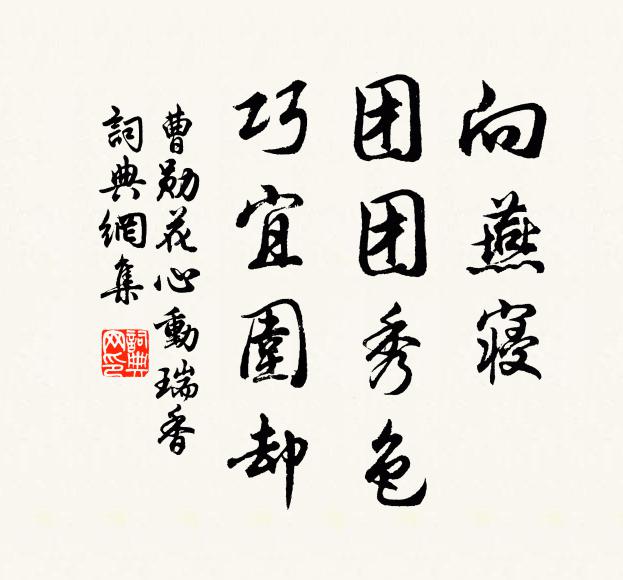 向燕寝
团团秀色
巧宜围却
曹勋花心動瑞香
詞典網集
詞典网印